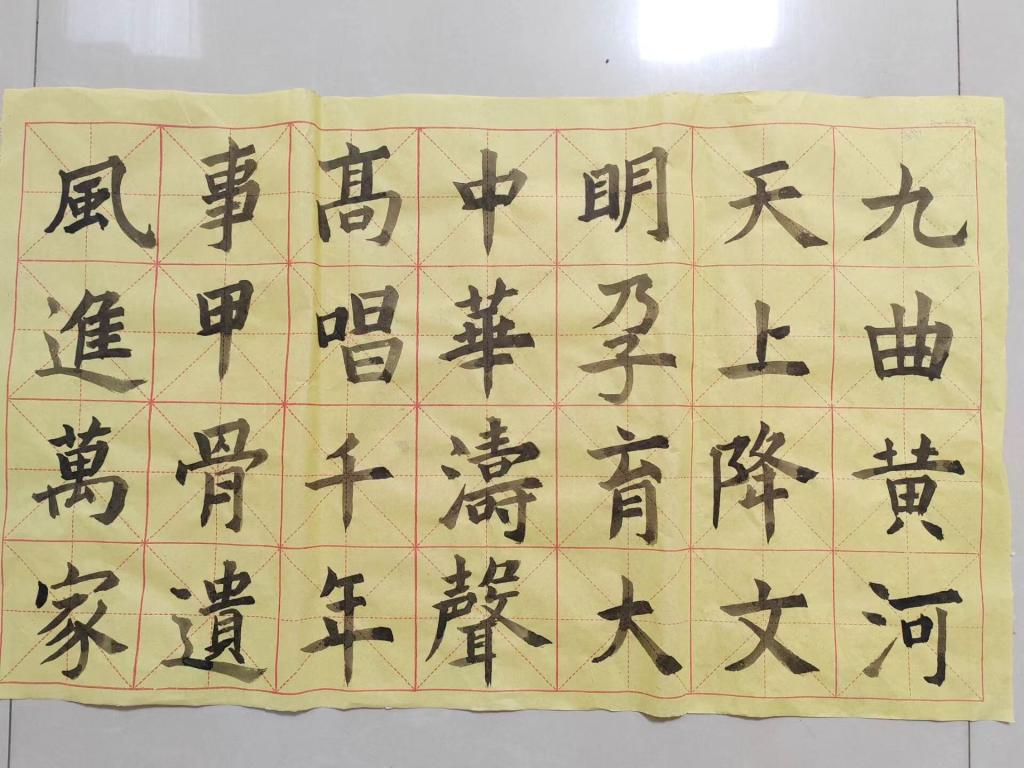 九曲黄河
天上降文
明孕育大
中華濤聲
髙唱千年
事甲骨遺
風進萬家